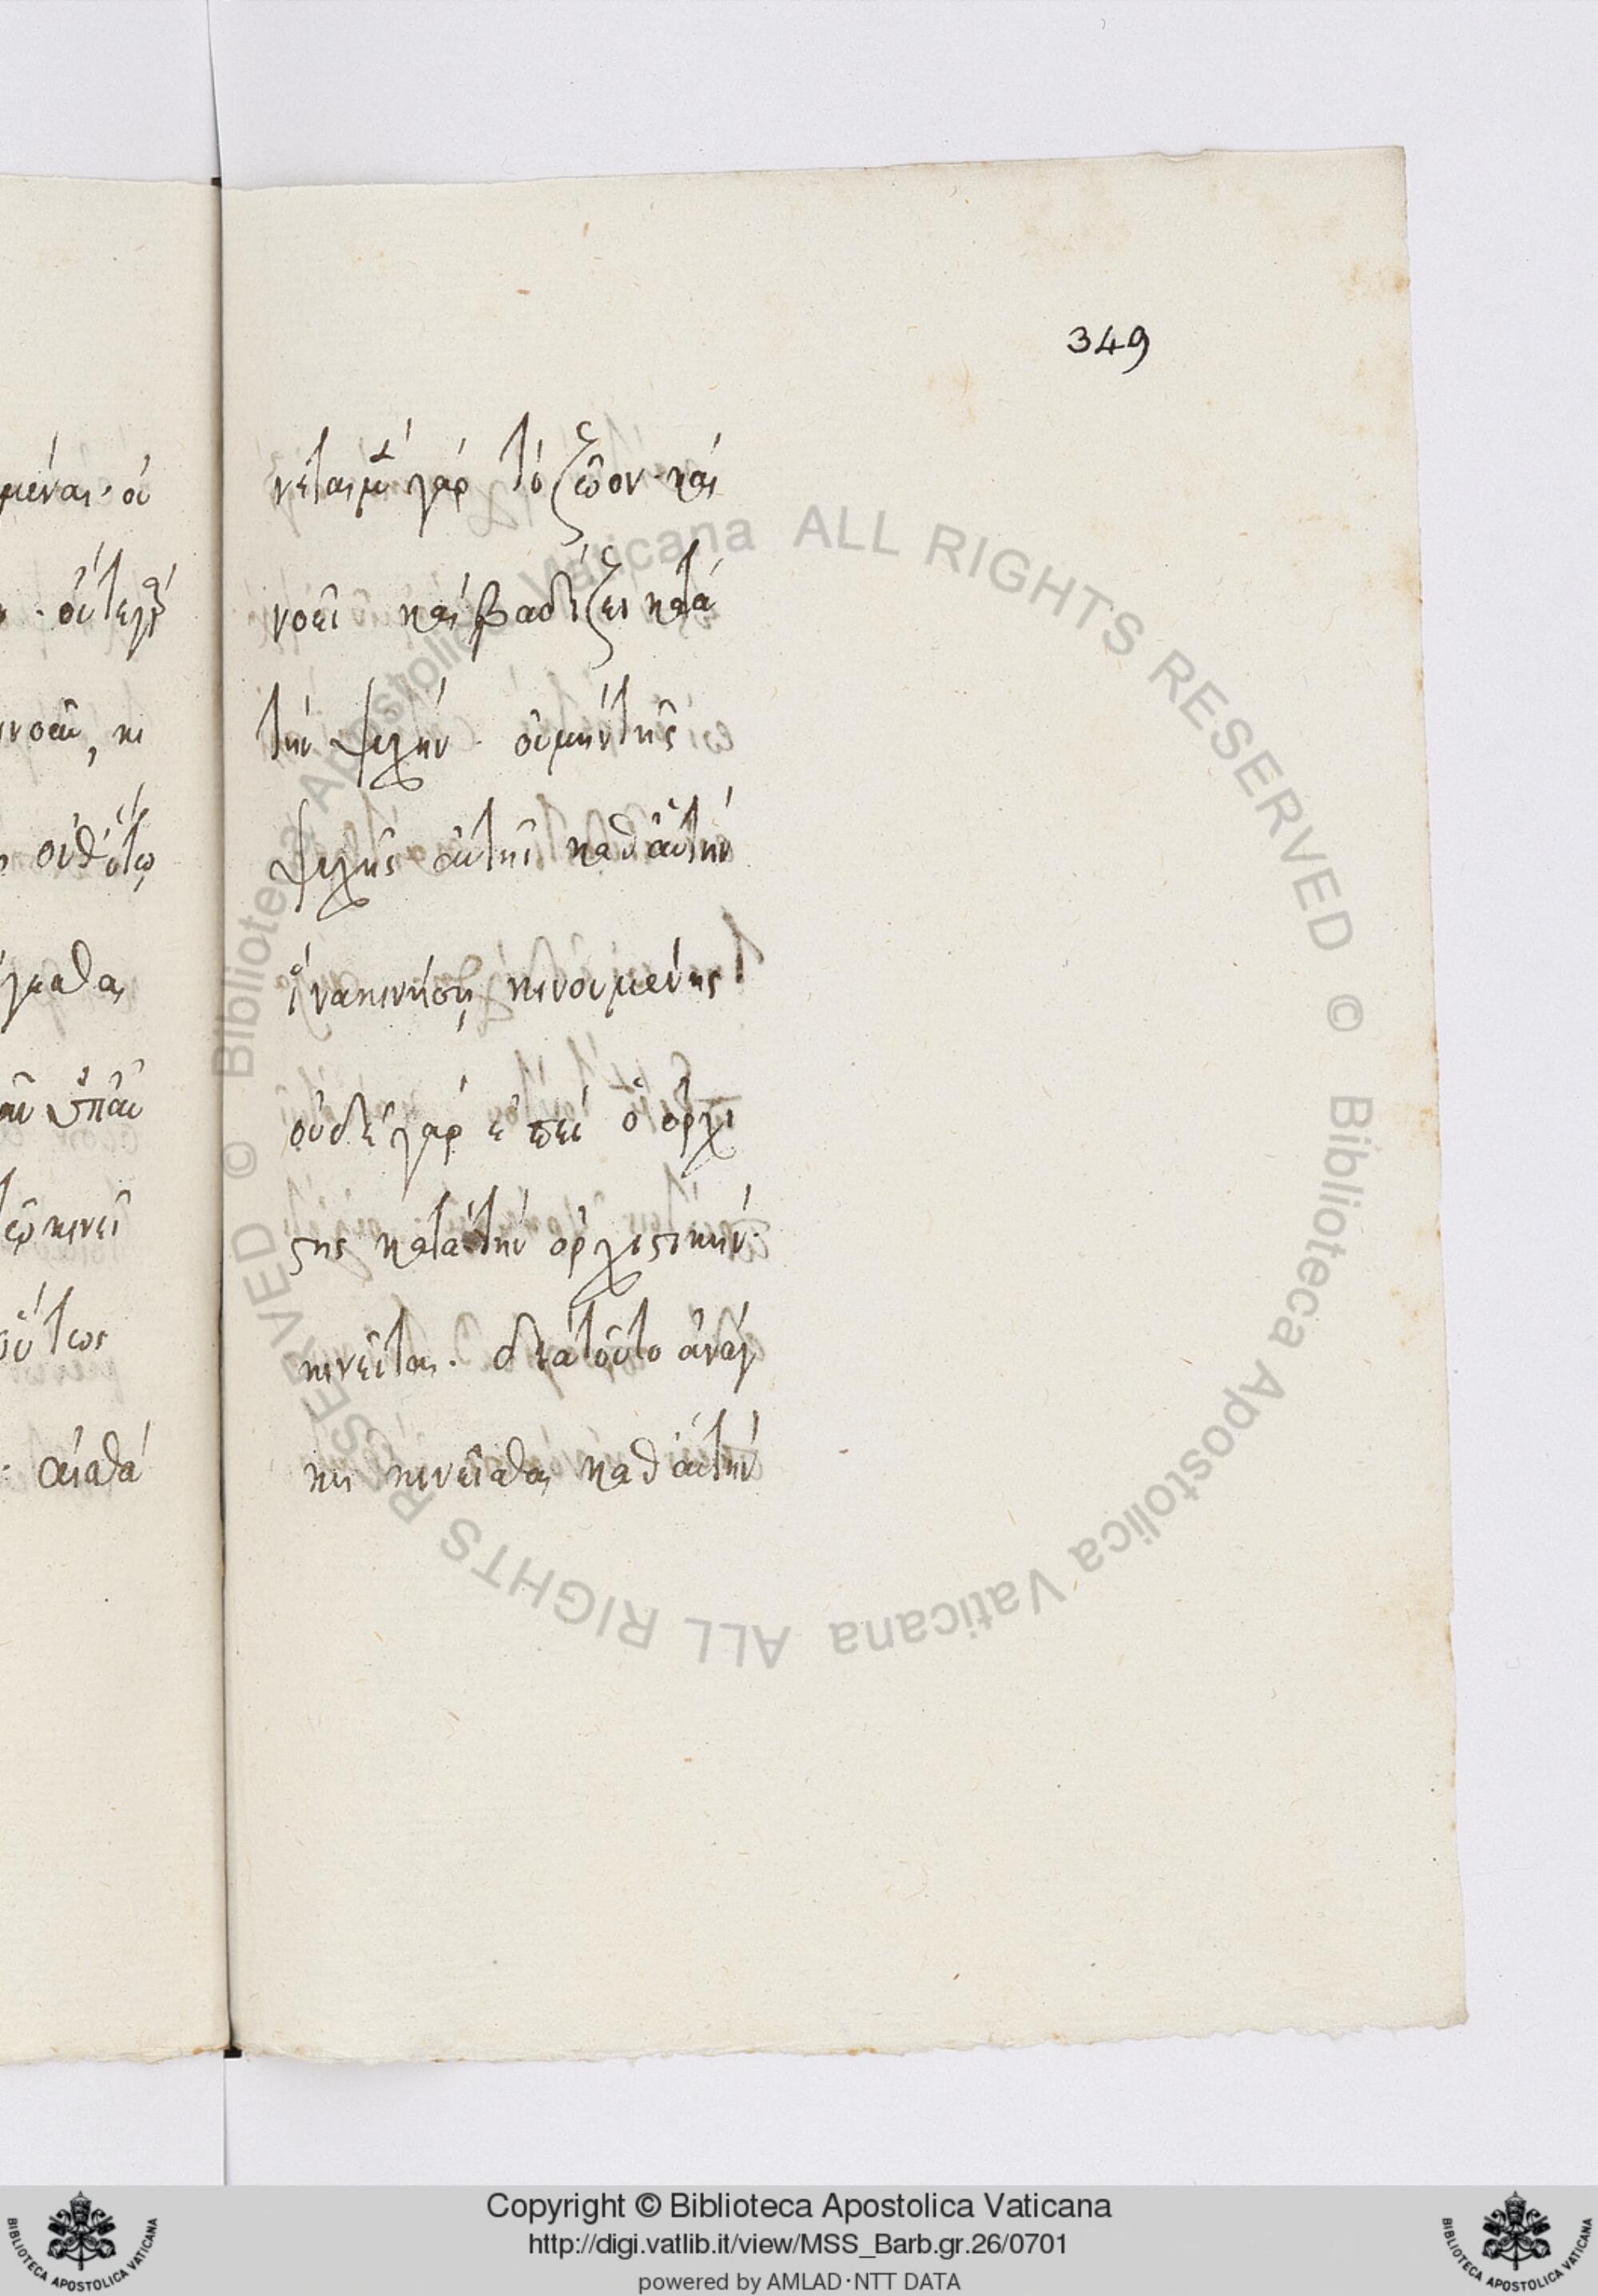 349
μέναι· οὐ
νεῖται μὲν γάρ τὸ ζῶον· καὶ
νοεῖ καὶ βαδίζει κατὰ
τὴν ψυχήν· οὐ μὴν τῆς
ψυχῆς αὐτῆς καθ' αὑτὴν
ἵνα κινήσῃ κινουμένης
οὐδὲ γὰρ ἐπεὶ ὁ ὀρχη
στὴς κατὰ τὴν ὀρχηστικὴν
κινεῖται· διὰ τοῦτο ἀνάγ
κη κινεῖσθαι καθ' αὑτὴν
ούτως
Biblioteca Apostolica Vaticana ALL RIGHTS RESERVED ©
Copyright © Biblioteca Apostolica Vaticana
http://digi.vatlib.it/view/MSS_Barb.gr.26/0701
powered by AMLAD·NTT DATA
BIBLIOTECA APOSTOLICA VATICANA
BIBLIOTECA APOSTOLICA VATICANA